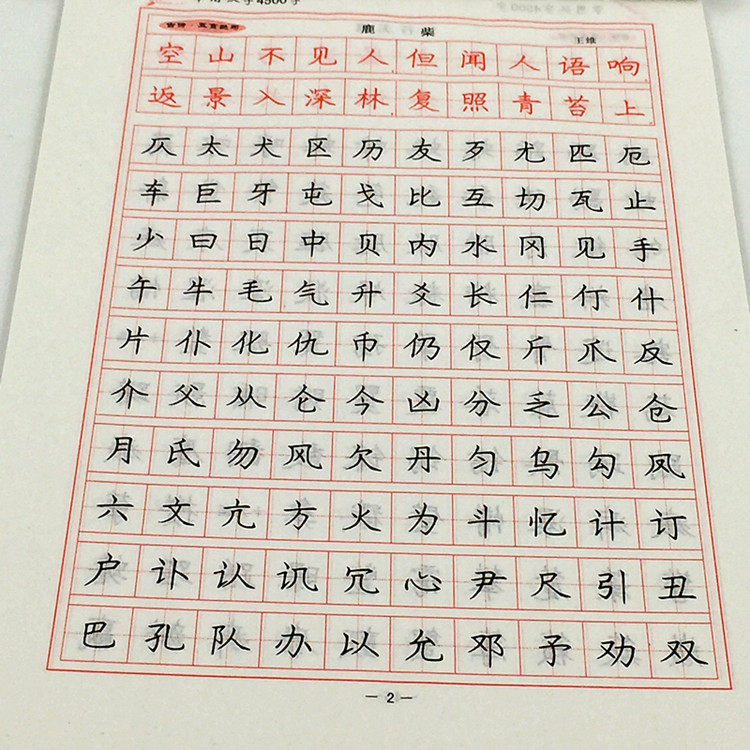 字4500字
古诗·五言绝句
鹿 柴
王维
空山不见人但闻人语响
返景入深林复照青苔上
仄太犬区历友歹尤匹厄
车巨牙屯戈比互切瓦止
少曰日中贝内水冈见手
午牛毛气升爻长仁仃什
片仆化仇币仍仅斤爪反
介父从仑今凶分乏公仓
月氏勿风欠丹匀乌勾凤
六文亢方火为斗忆计订
户讣认讥冗心尹尺引丑
巴孔队办以允邓予劝双
— 2 —